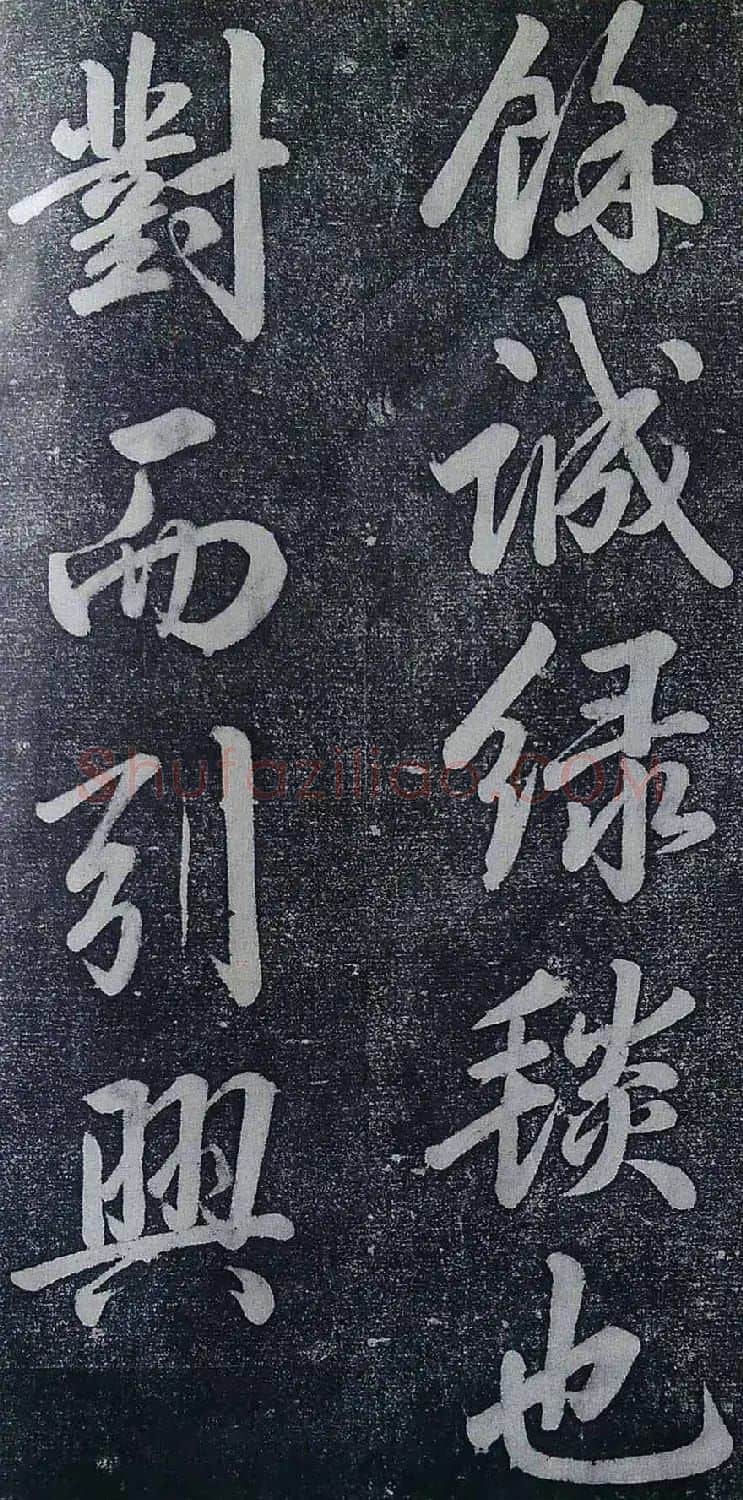 餘誠緑毯也
對而引興
Shufaziliao.COM